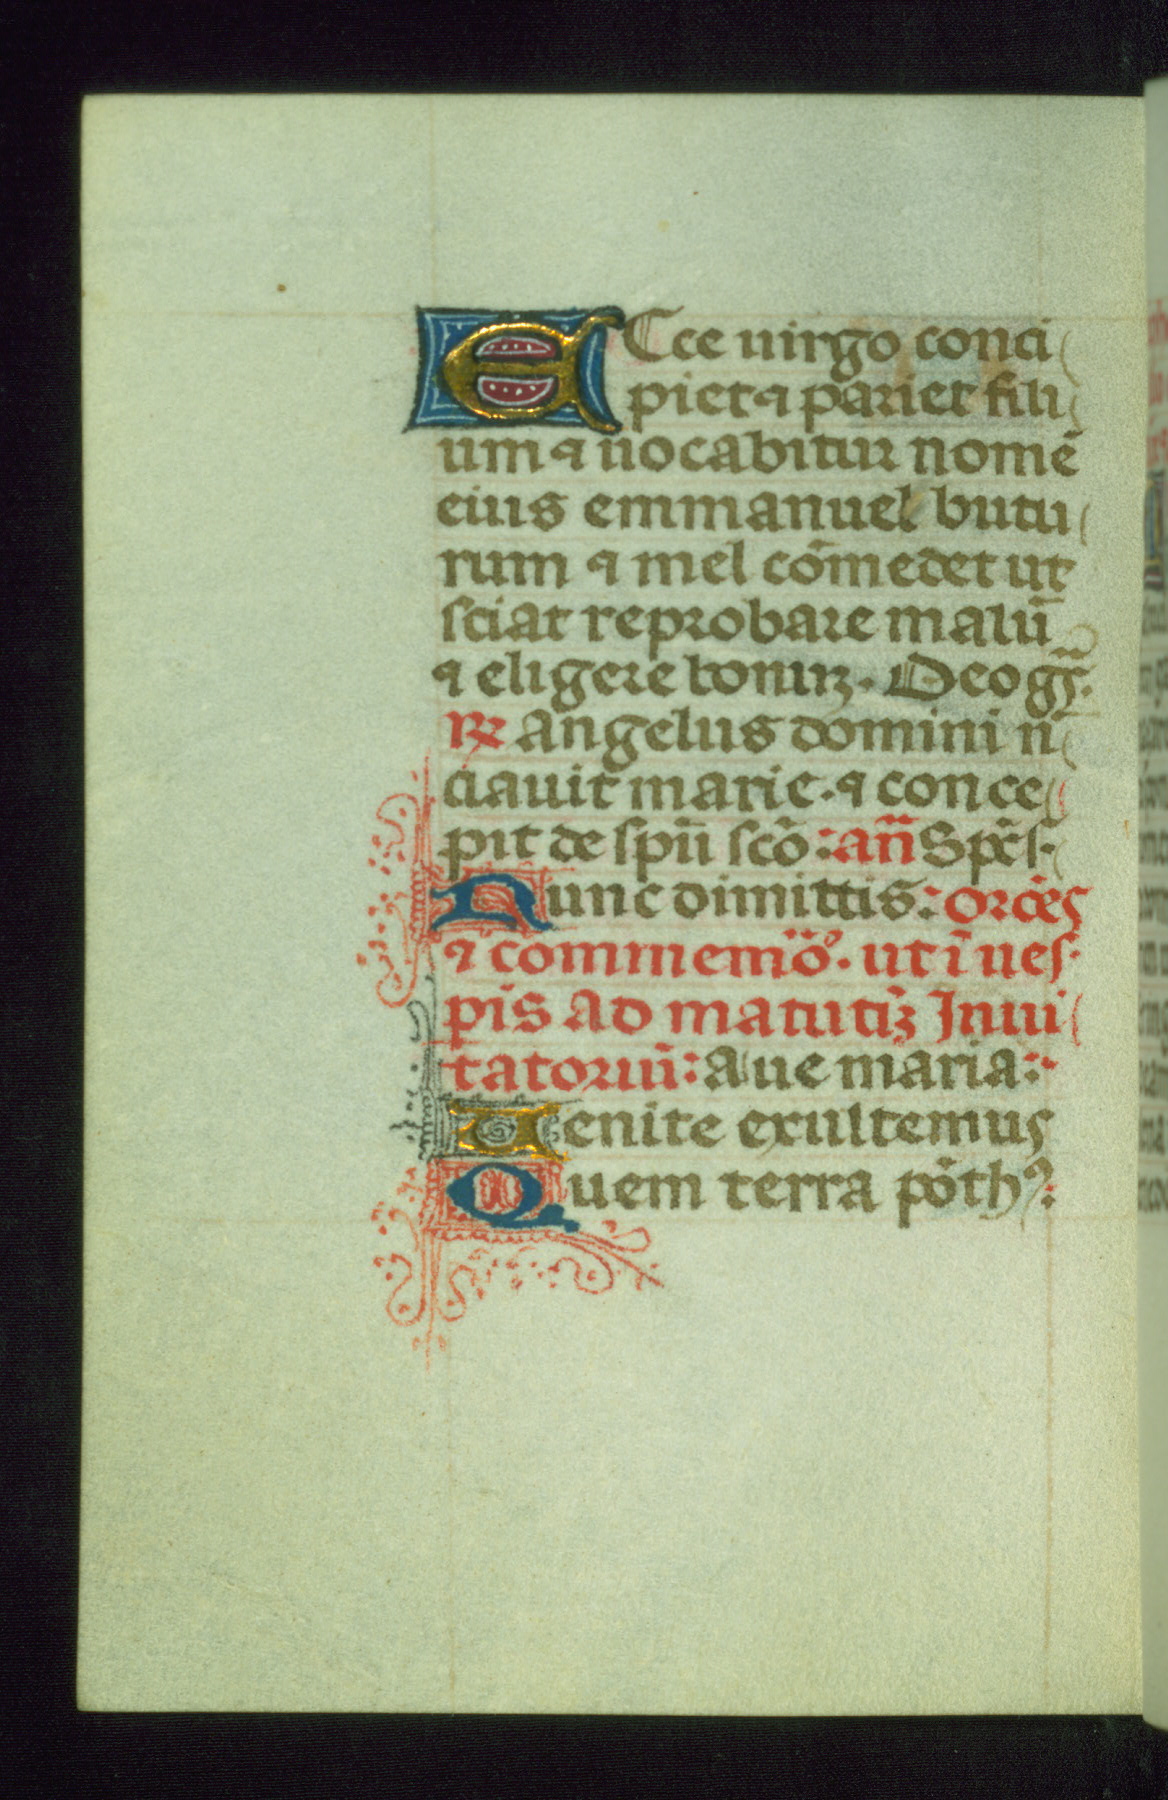 Ecce uirgo conci
piet ⁊ pariet fili
um ⁊ uocabitur nomē
eius emmanuel butu
rum ⁊ mel cōmedet ut
sciat reprobare malū
⁊ eligere bonuꝫ. Deo gr̄s.
℞ Angelus domini n̄
ciauit marie. ⁊ conce
pit de spū scō: an̄ Spēs.
Nunc dimittis: orōēs
⁊ commemō. ut ī ues
pīs Ad matutīꝫ Inui
tatoriū: Aue maria:
Uenite exultemus
Quem terra pōthꝰ: